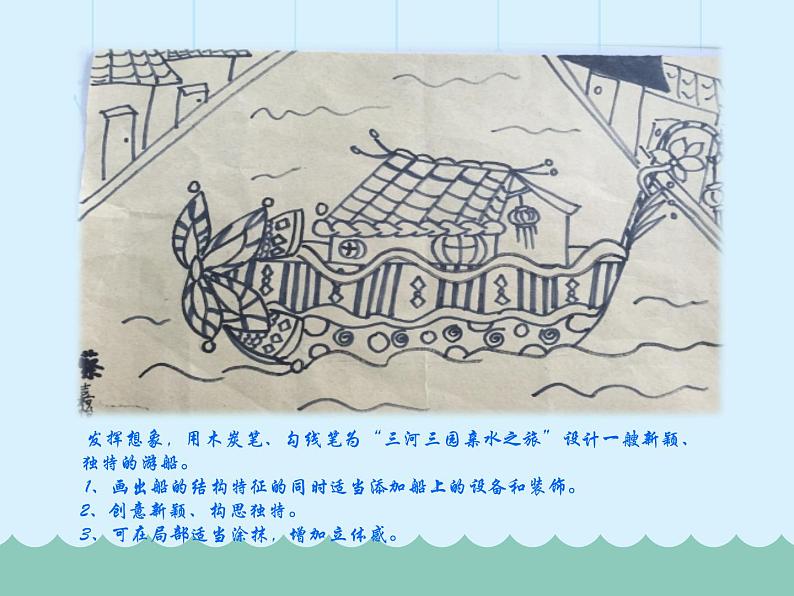 蔡
嘉
发挥想象，用木炭笔、勾线笔为“三河三园亲水之旅”设计一艘新颖、
独特的游船。
1、画出船的结构特征的同时适当添加船上的设备和装饰。
2、创意新颖、构思独特。
3、可在局部适当涂抹，增加立体感。